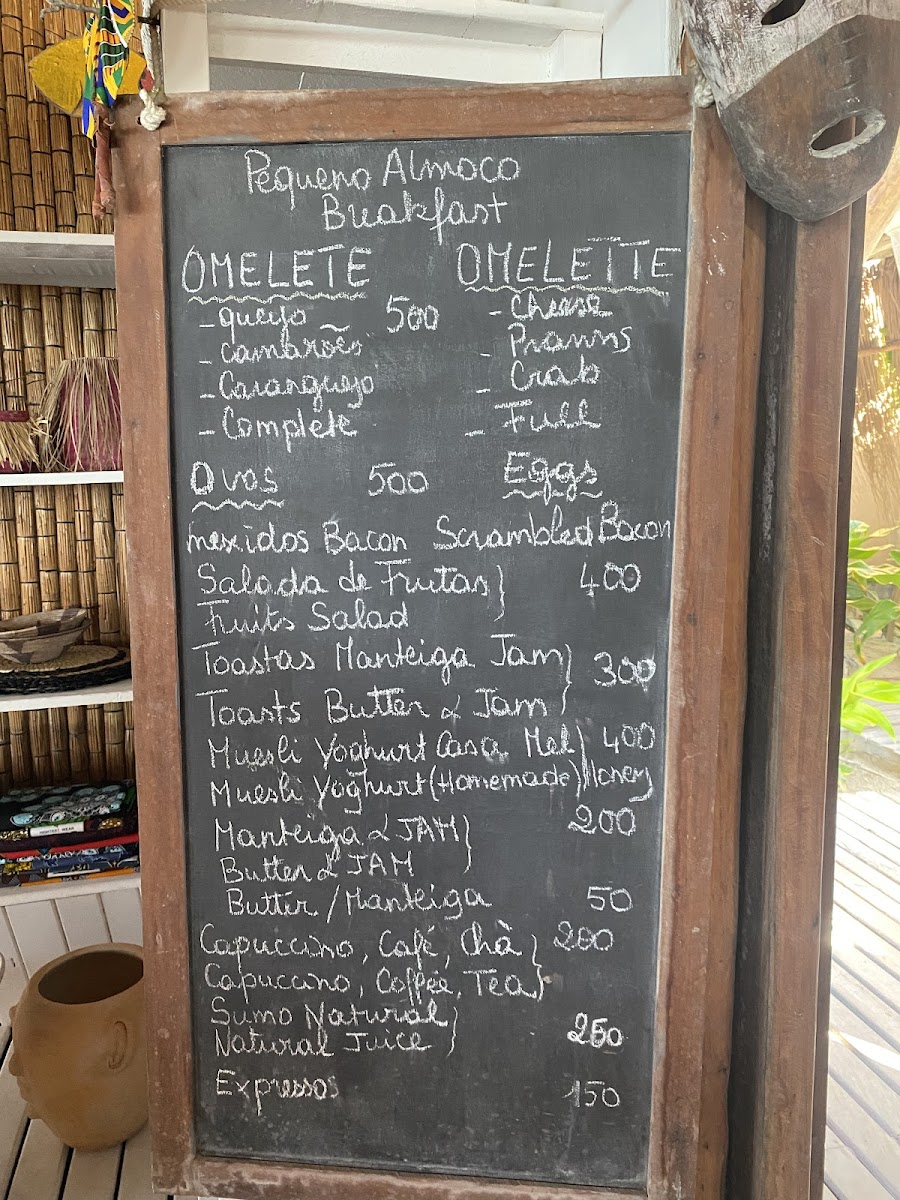 Pequeno Almoco
Breakfast
OMELETE OMELETTE
- queijo 500 - Cheese
- Camarões - Prawns
- Caranguejo - Crab
- Complete - Full
Ovos 500 Eggs
mexidos Bacon Scrambled Bacon
Salada de Frutas } 400
Fruits Salad
Toastas Manteiga Jam } 300
Toasts Butter & Jam
Muesli Yoghurt Casa Mel } 400
Muesli Yoghurt (Homemade) Honey
Manteiga & JAM } 200
Butter & JAM
Butter / Manteiga 50
Capuccino, Café, Chà } 200
Capuccino, Coffee, Tea
Sumo Natural } 250
Natural Juice
Expressos 150